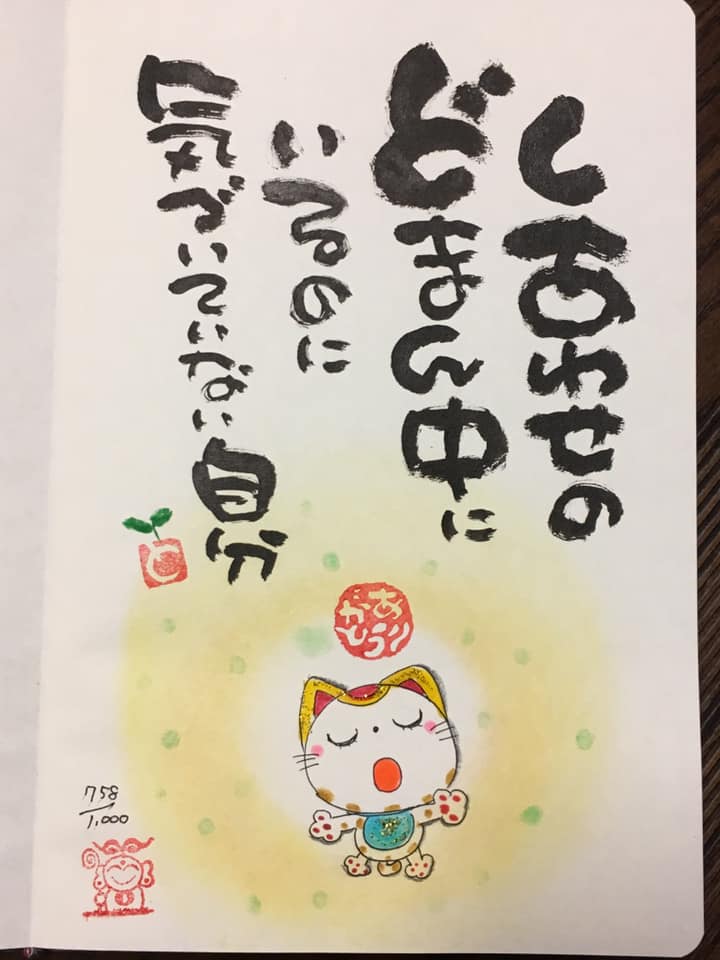 しあわせの
どまん中に
いるのに
気づいていない自分
と
ありがとう
758/1,000